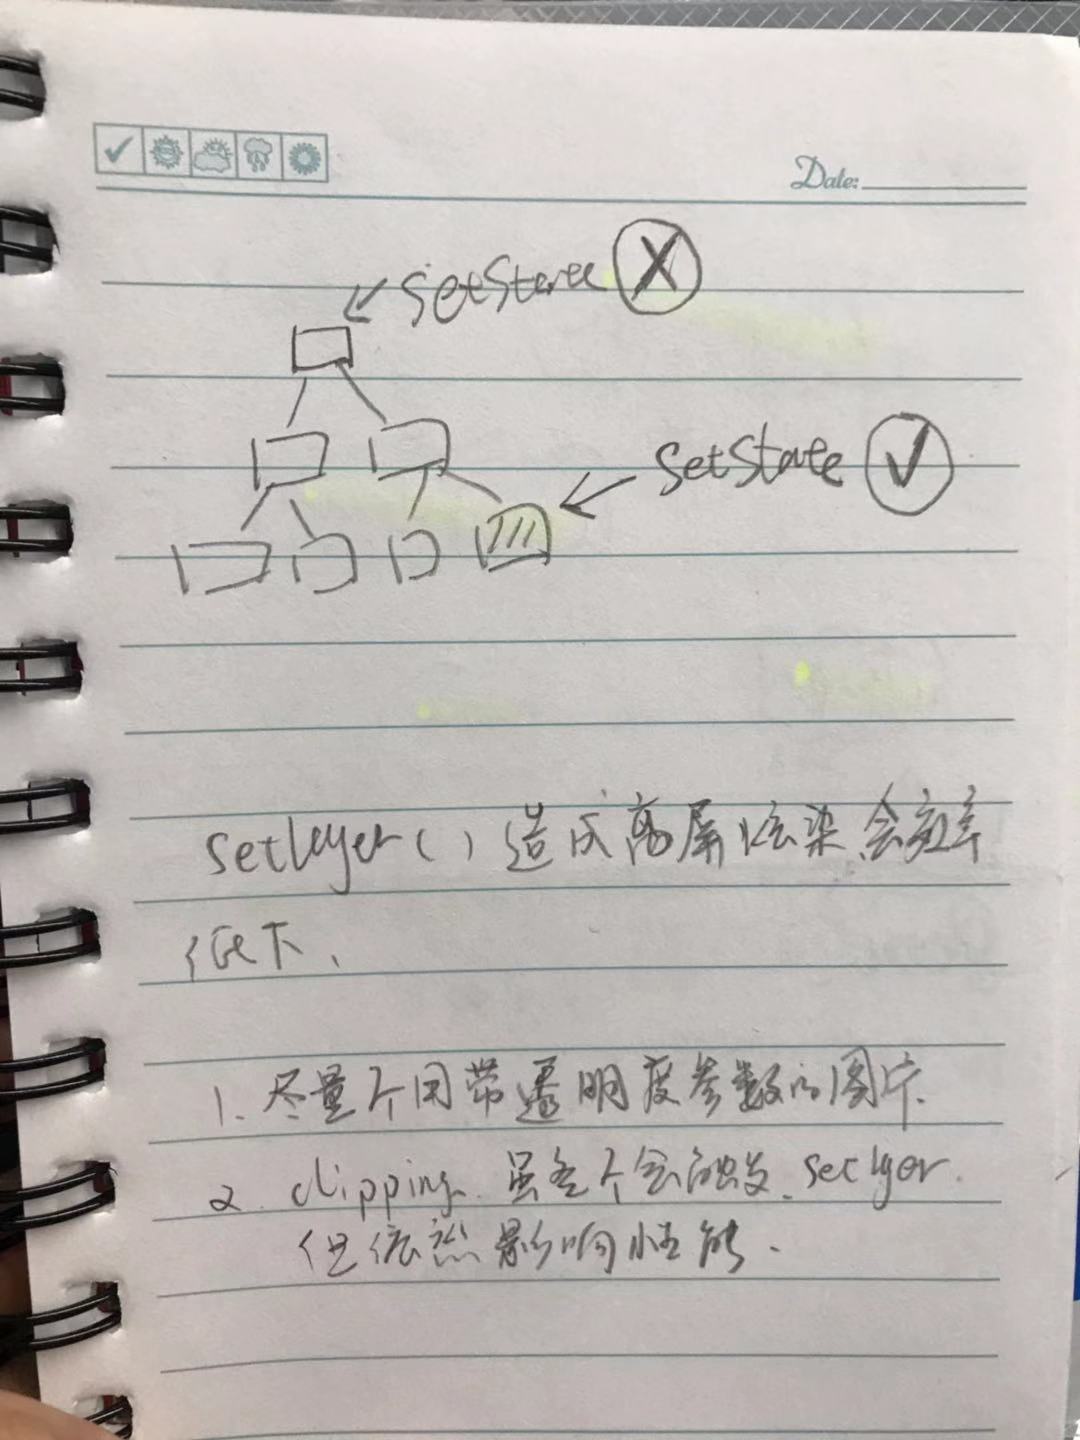 Date:
setState X
setState ✓
setlayer()造成离屏渲染会效率
低下、
1. 尽量不用带透明度参数的图片.
2. clipping. 虽然不会触发 setlyer.
但依然影响性能.